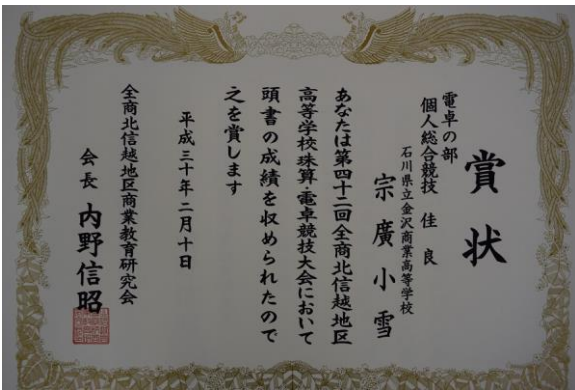 賞状
電卓の部
個人総合競技 佳良
石川県立金沢商業高等学校
宗廣小雪
あなたは第四十二回全商北信越地区
高等学校珠算・電卓競技大会において
頭書の成績を収められたので
之を賞します
平成三十年二月十日
全商北信越地区商業教育研究会
会長 内野信昭